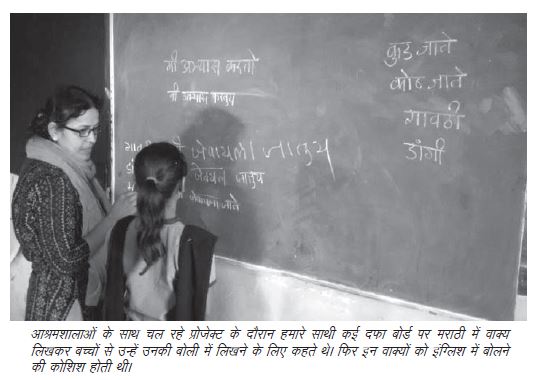 मी अभ्यास करतो
मी अभ्यास करतुय
जेवायला जातुय
जेवायला जाते
कुठ जाते
कोठ जाते
गावठी
डांगी
आश्रमशालाओं के साथ चल रहे प्रोजेक्ट के दौरान हमारे साथी कई दफा बोर्ड पर मराठी में वाक्य
लिखकर बच्चों से उन्हें उनकी बोली में लिखने के लिए कहते थे। फिर इन वाक्यों को इंग्लिश में बोलने
की कोशिश होती थी।